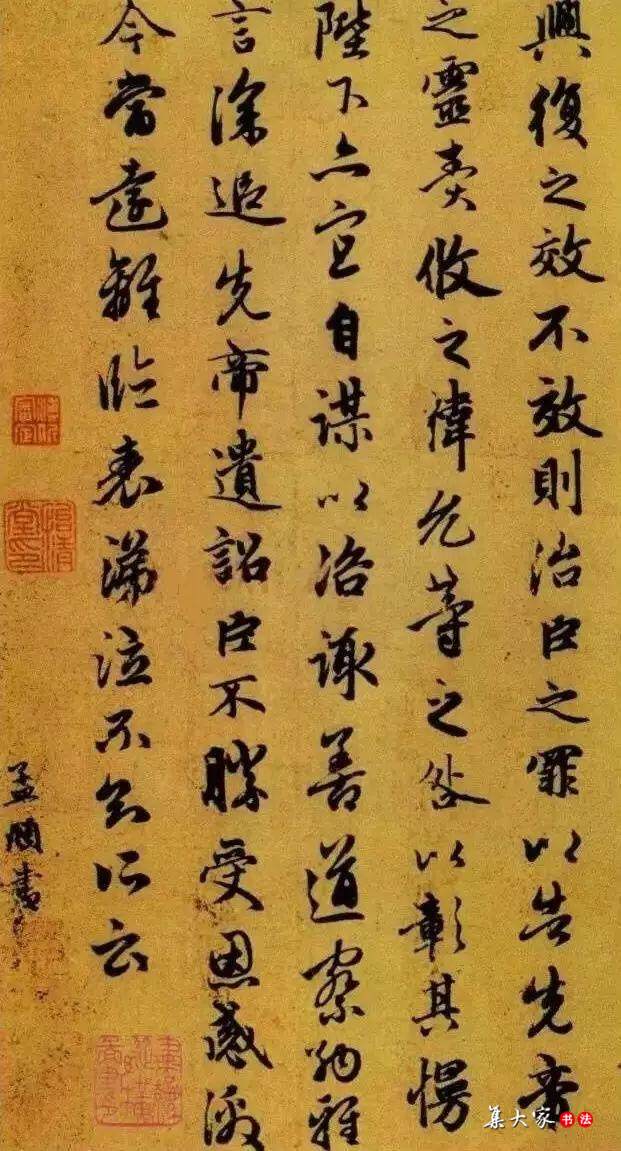 興復之效不效則治臣之罪以告先帝
之靈責攸之禕允等之咎以彰其慢
陛下亦宜自謀以咨諏善道察納雅
言深追先帝遺詔臣不勝受恩感激
今當遠離臨表涕泣不知所云
孟頫書
集大家书法